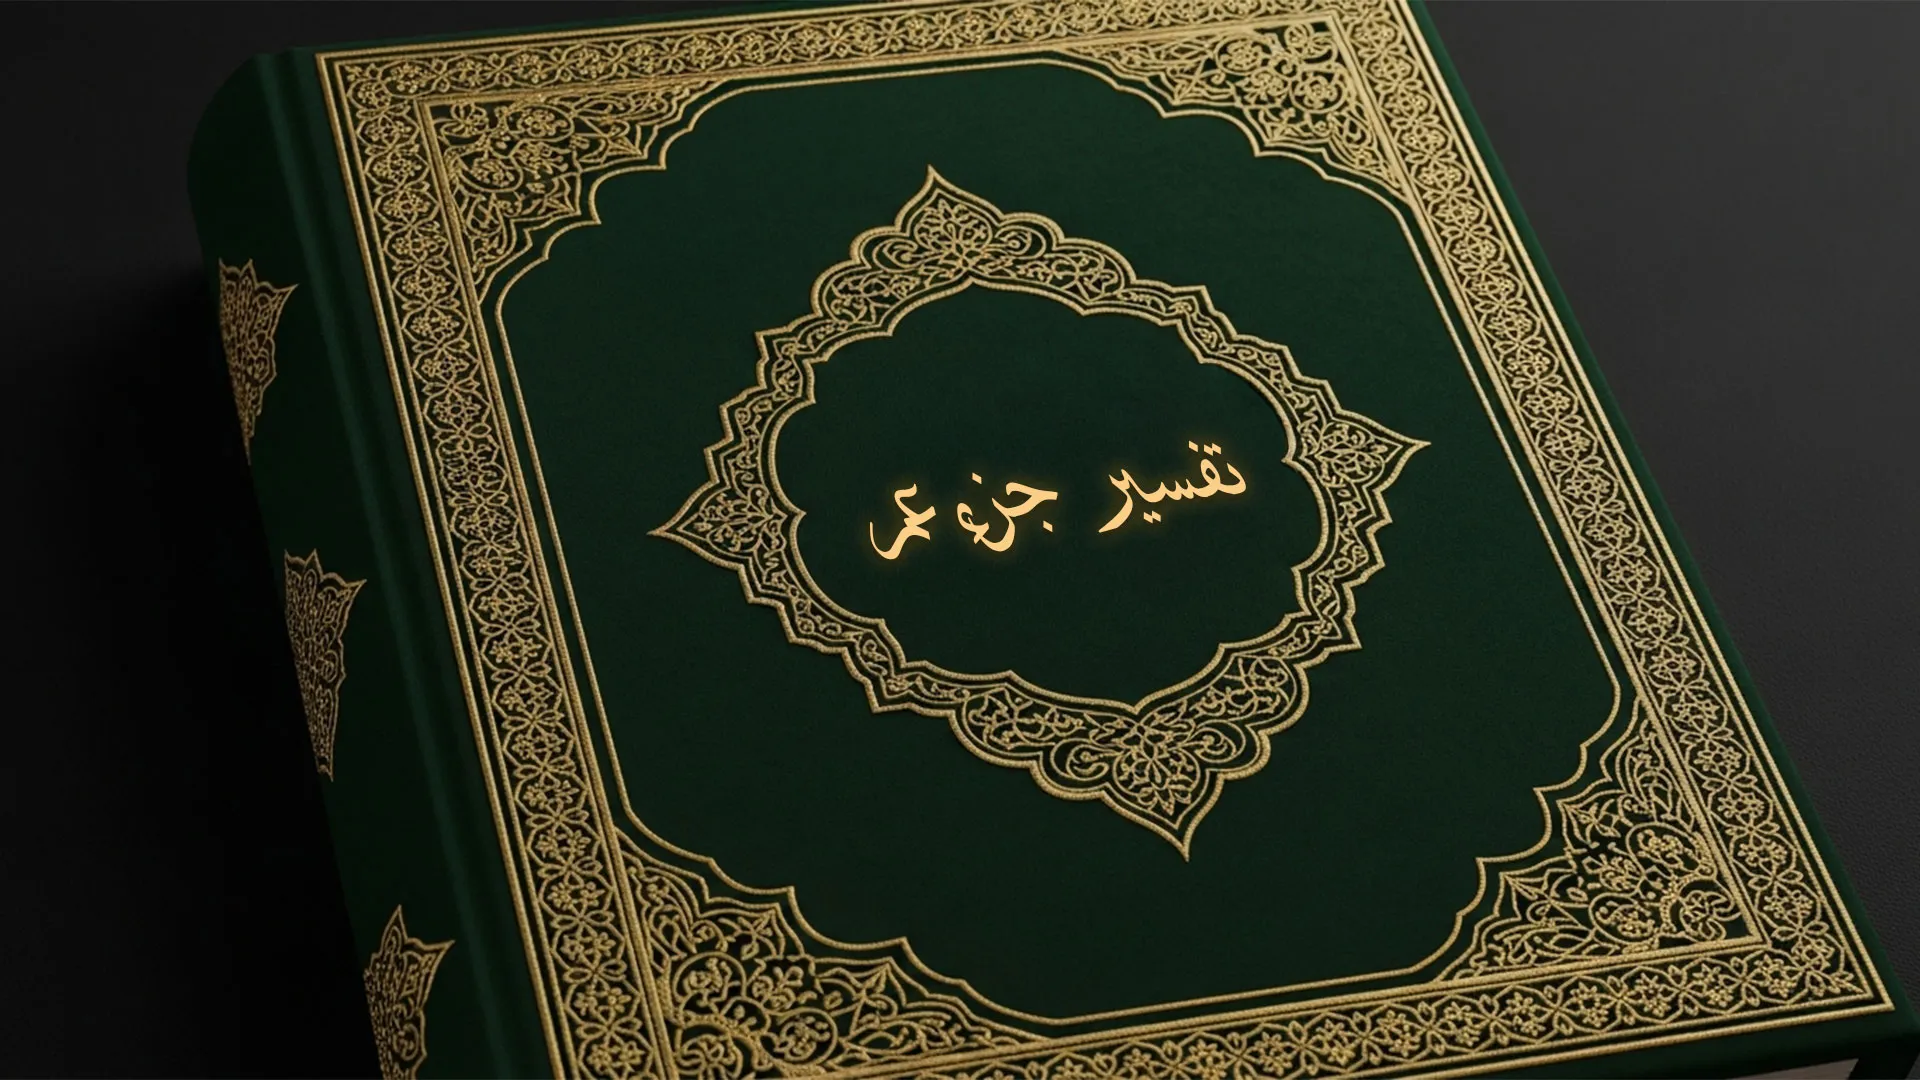 تفسير جزء عم